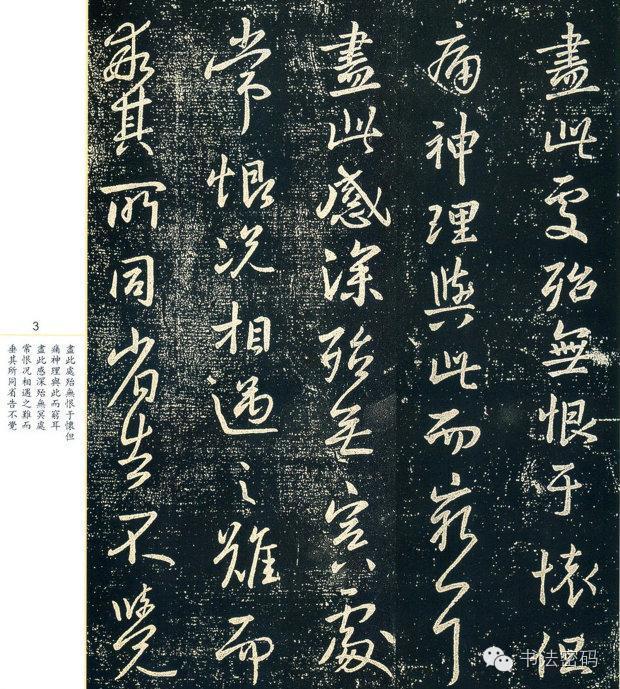 盡此處殆無恨于懷但
痛神理與此而窮耳
盡此感深殆無冥處
常恨况相遇之難而
垂其所同省告不覺
3
盡此處殆無恨于懷但
痛神理與此而窮耳
盡此感深殆無冥處
常恨况相遇之難而
垂其所同省告不覺
书法密码